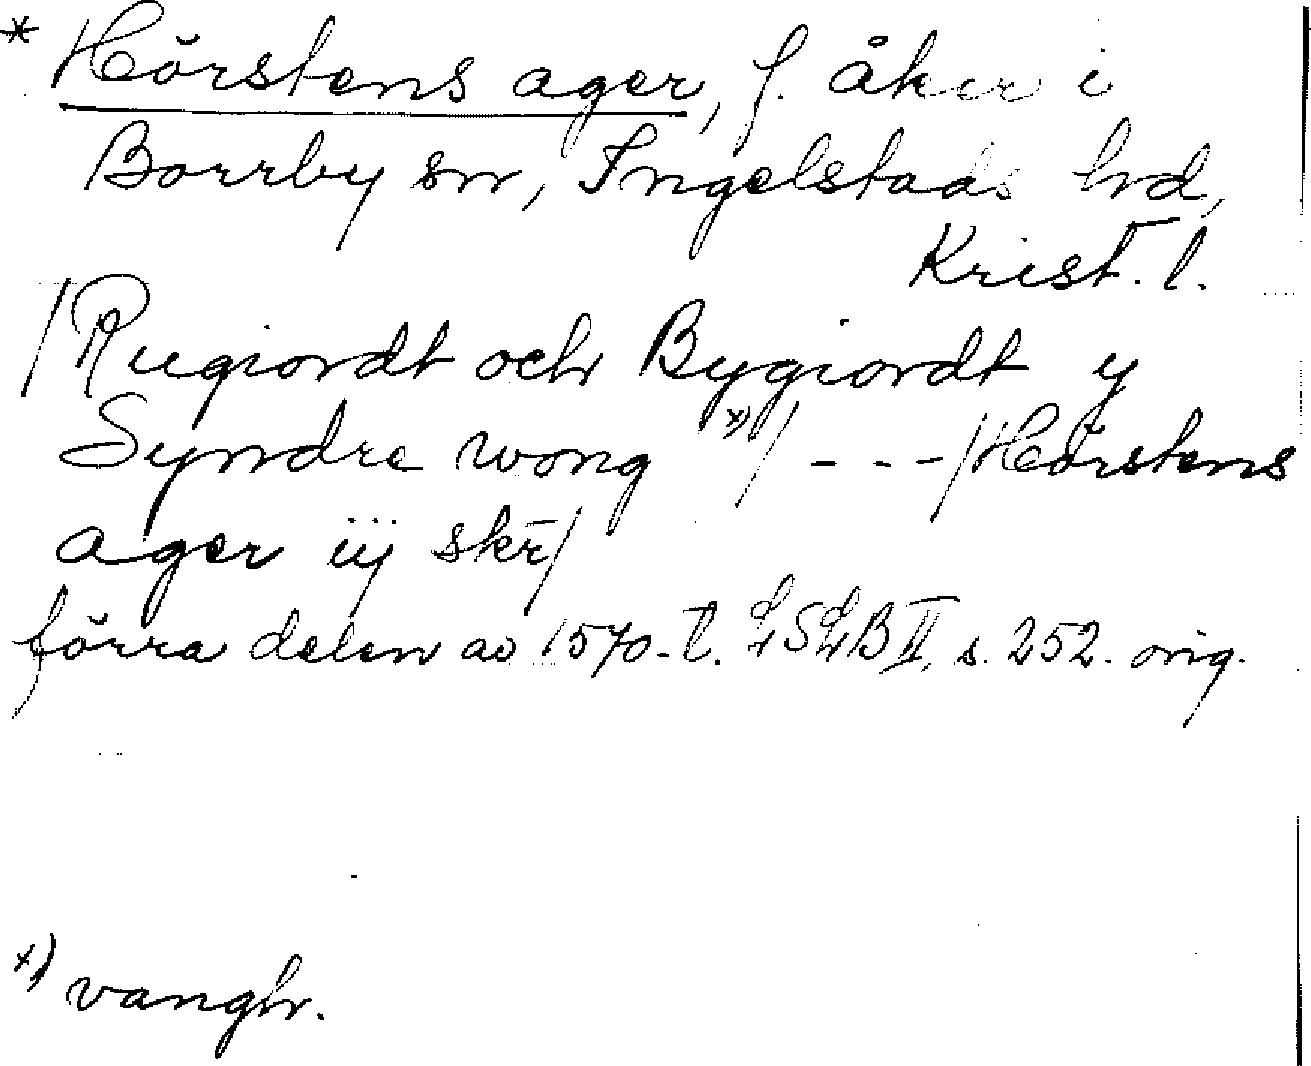 * Hörstens ager, f. åker i
Borrby sn, Ingelstads hd,
Krist. l.
/Rugiordt och Bygiordt y
Syndre wong x)/ - - -/Hörstens
ager iij skr̄/
förra delen av 1570-t. LSLB II, s. 252. orig.
x) vangh.